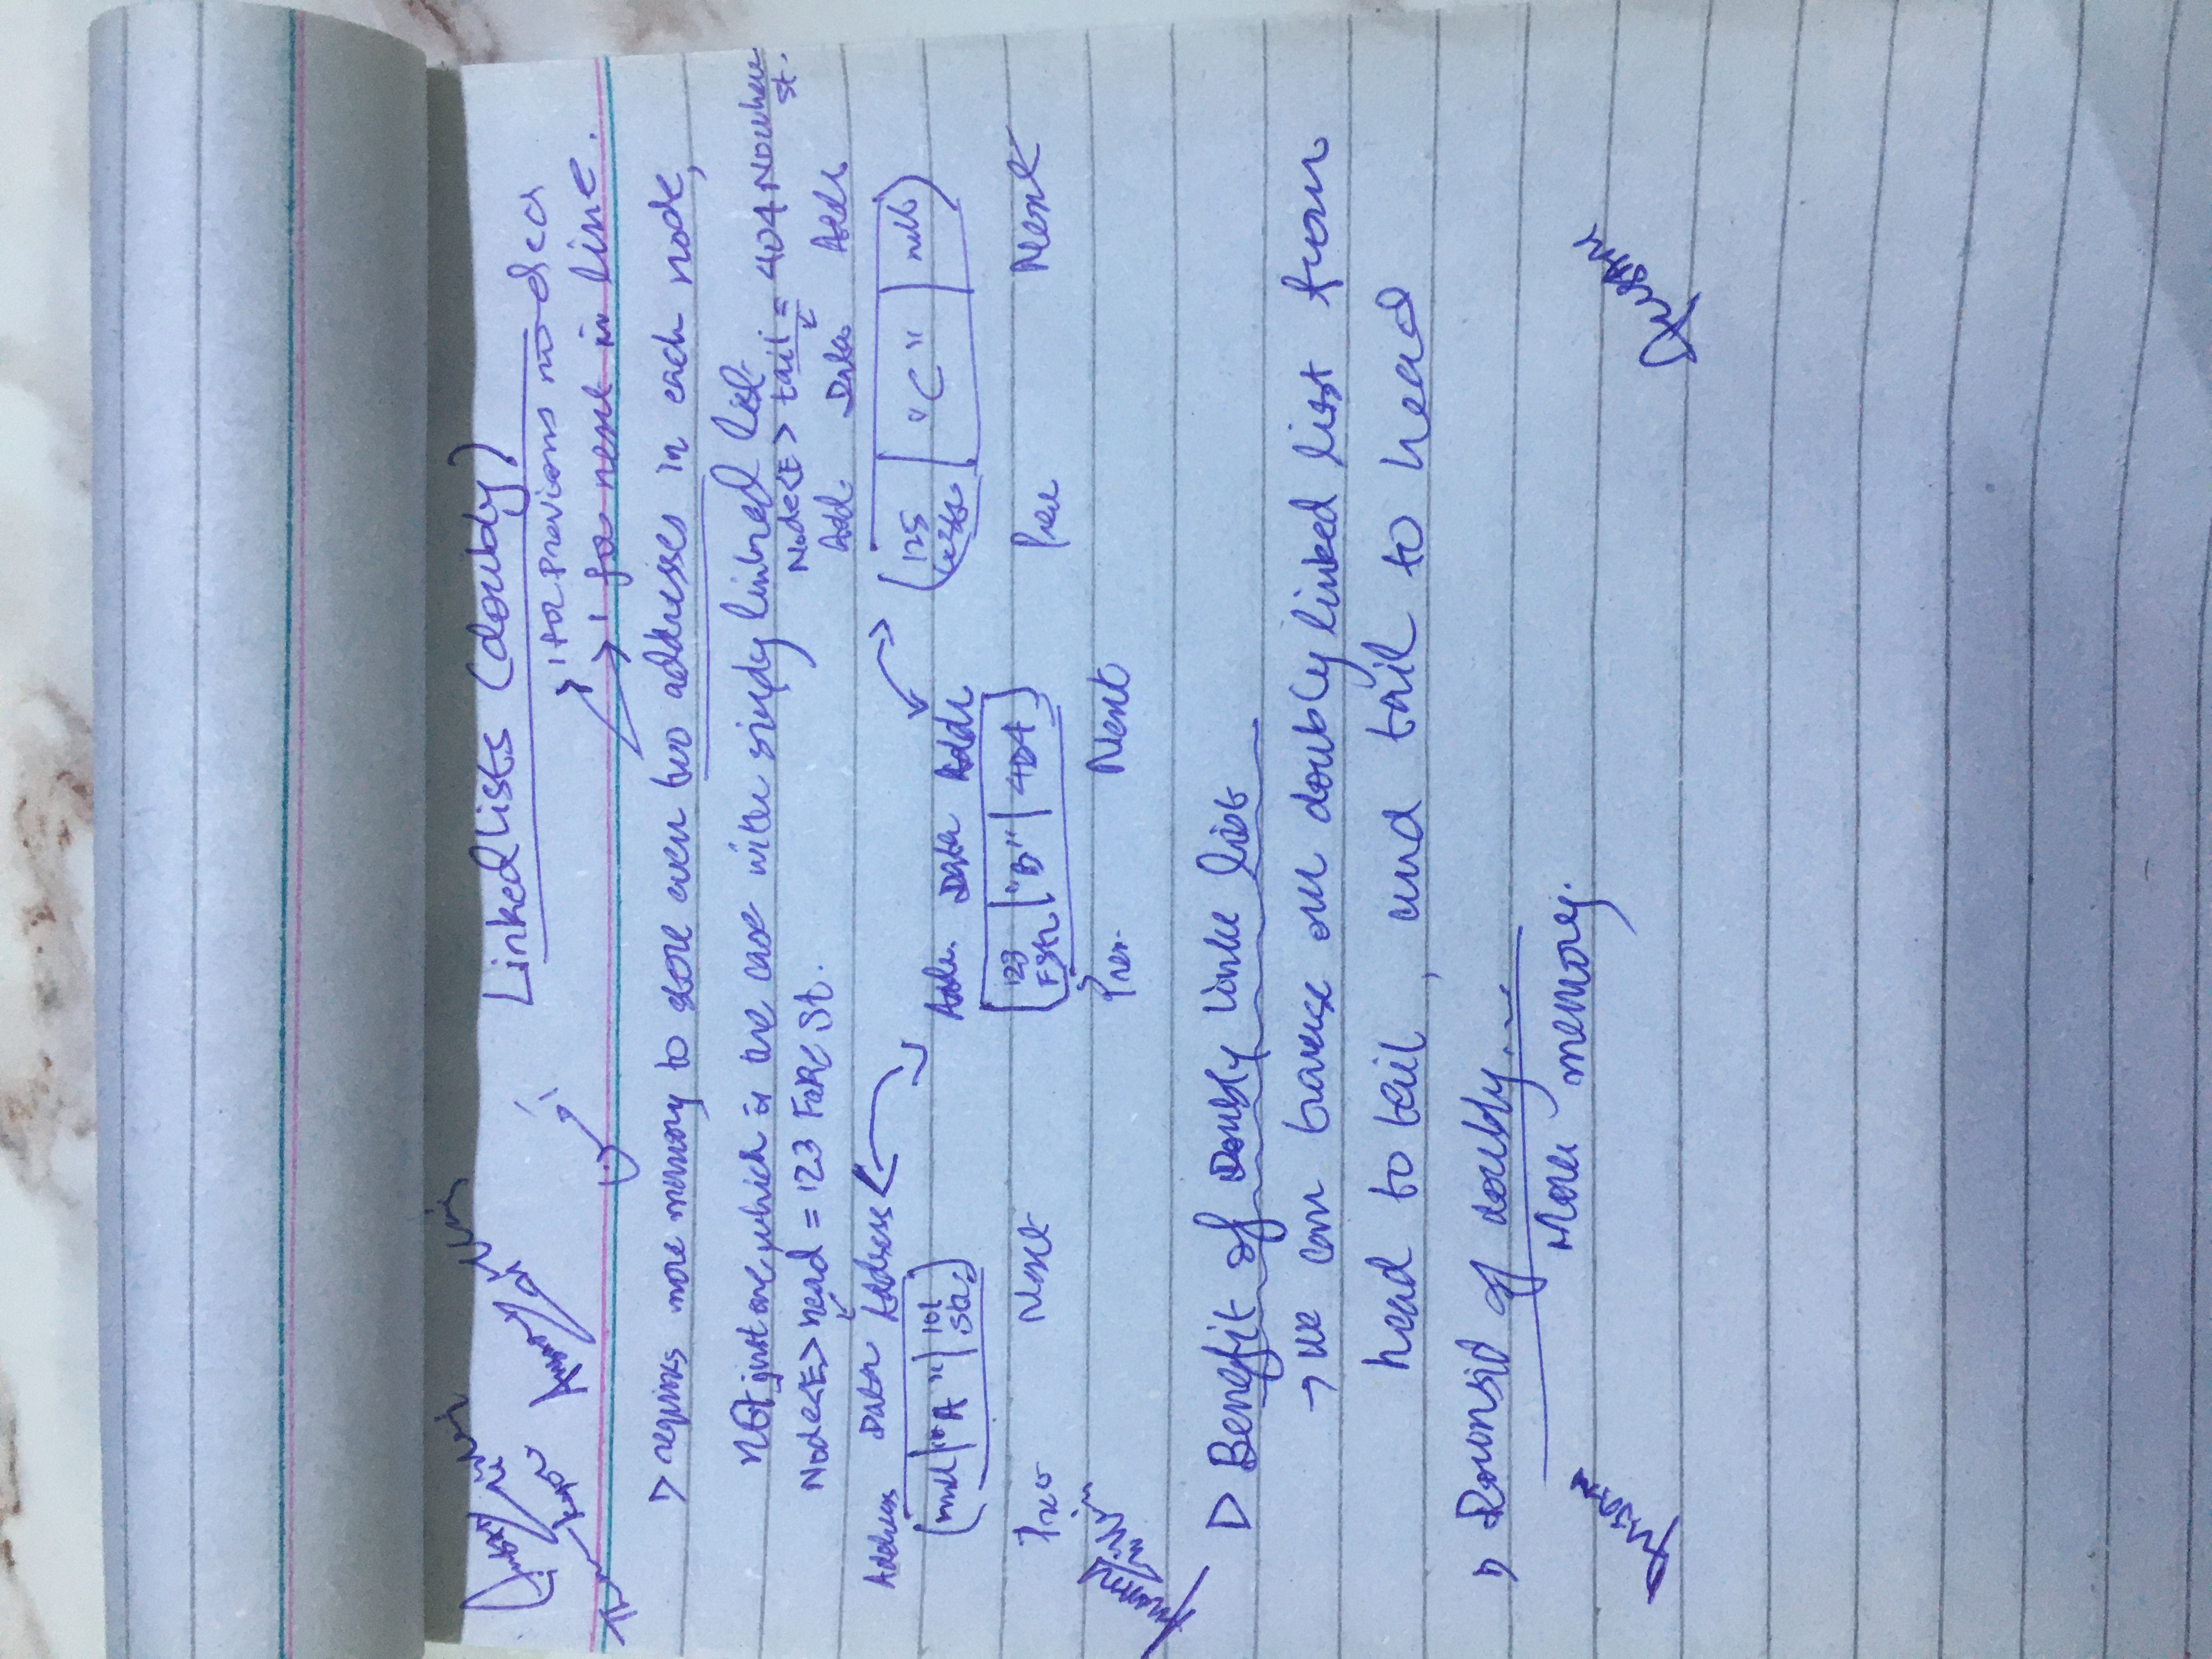 Linked Lists (doubly)
1 for Previous node
1 for next in line.
requires more memory to store even two addresses in each node,
Not just one, which is the case with singly linked list
Node<E> tail = 404 Nowhere St.
Node<E> head = 123 Fake St.
Address Data Address
null "A" 101
Prev Next
Addr. Data Addr
123 "B" 404
Prev. Next
Add. Data Addr
125 "C" null
Prev Next
Benefit of Doubly linke list
→ we can traverse our doubly linked list from
head to tail, and tail to head
Downsid of doubly...
More memory.